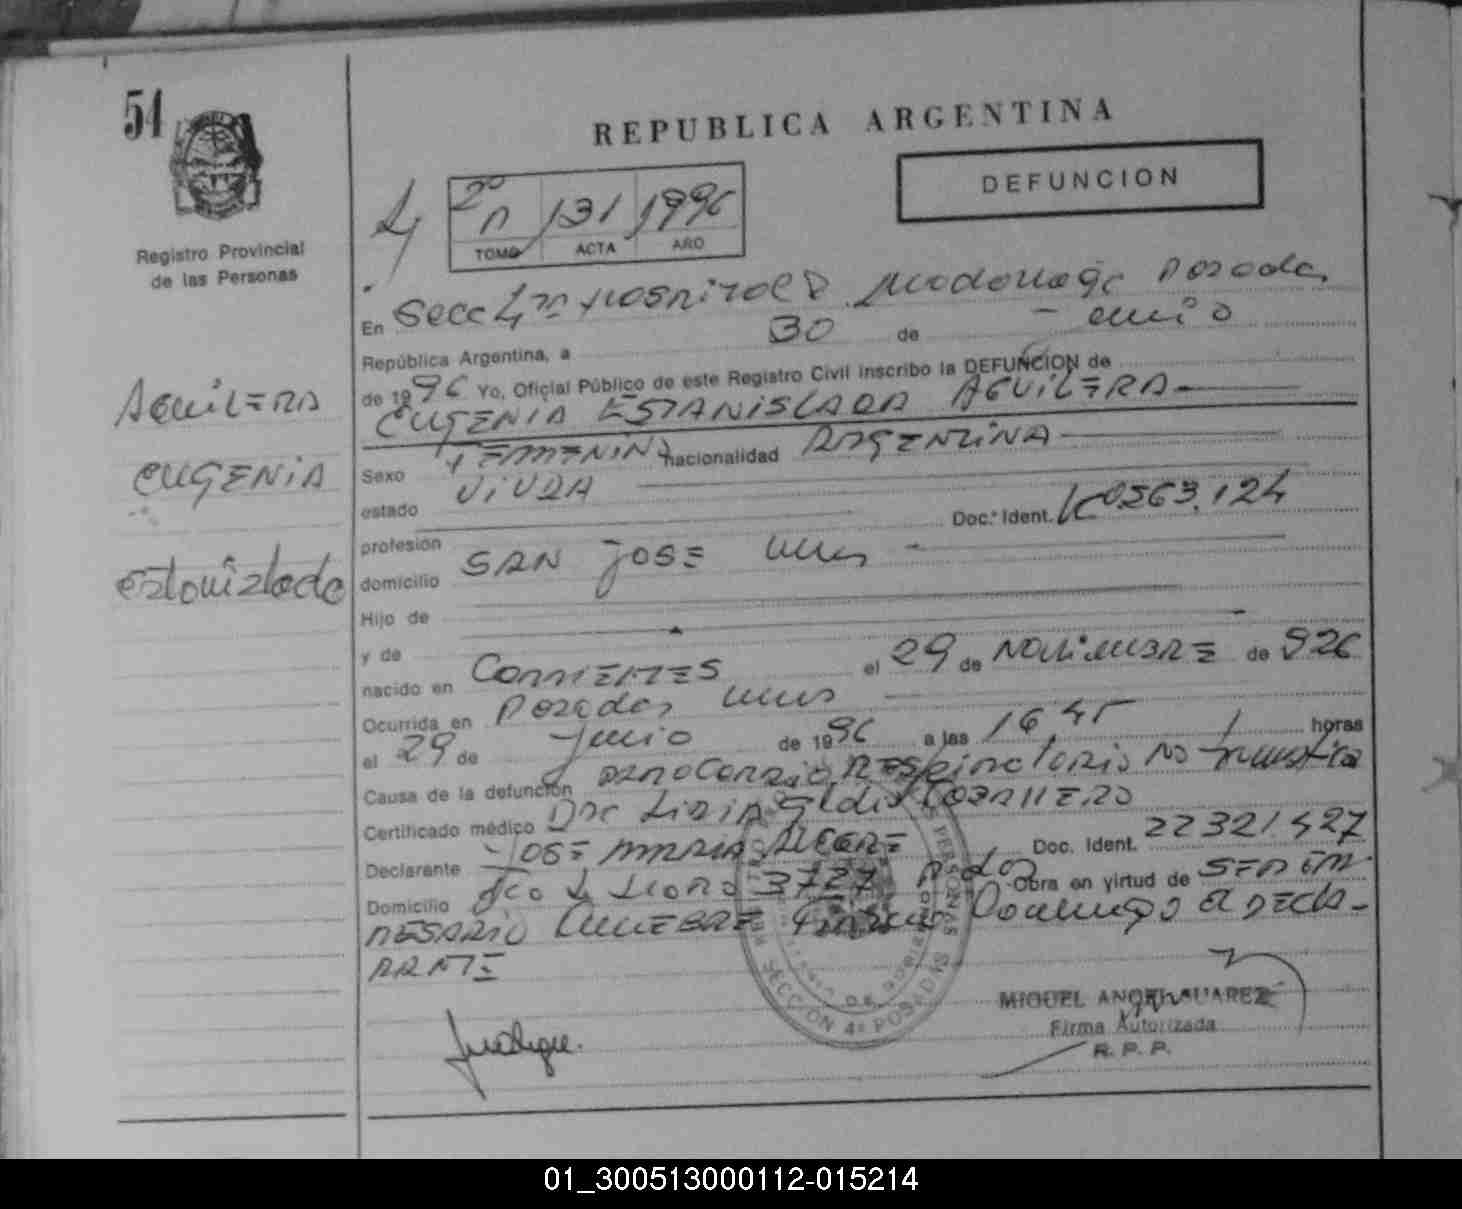 51
REPUBLICA ARGENTINA
DEFUNCION
Registro Provincial
de las Personas
2º 131 1996
TOMO ACTA AÑO
En Secc 4ta Hospital Dr Madariaga Posadas
República Argentina, a 30 de Junio
de 1996 Yo, Oficial Público de este Registro Civil inscribo la DEFUNCION de
EUGENIA ESTANISLADA AGUILERA
AGUILERA
EUGENIA
Estanislada
Sexo FEMENINA nacionalidad ARGENTINA
estado VIUDA
profesión Doc. Ident.
domicilio SAN JOSE Mnes
Hijo de
y de
nacido en CORRIENTES el 29 de NOVIEMBRE de 926
Ocurrida en Posadas Mnes
el 29 de Junio de 1996 a las 16 45 horas
Causa de la defunción PARO CARDIO RESPIRATORIO NO traumatico
Certificado médico Dra
Declarante JOSE MARIA Doc. Ident. 22321427
Domicilio 3727 Pdas Obra en virtud de SER EM-
PESARIO Domingo el DECLA-
RANTE
REGISTRO PROVINCIAL DE LAS PERSONAS
SECCION 4ª POSADAS
MIGUEL ANGEL SUAREZ
Firma Autorizada
R. P. P.
01_300513000112-015214